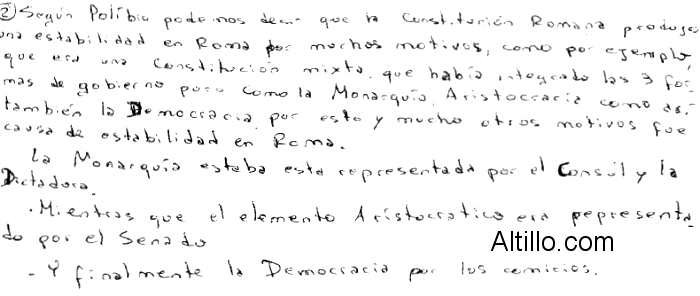 ② Según Políbio podemos decir que la Constitución Romana produjo
una estabilidad en Roma por muchos motivos, como por ejemplo,
que era una Constitución mixta. que había integrado las 3 for-
mas de gobierno puro como la Monarquía, Aristocracia como as-
también la Democracia, por esto y mucho otros motivos fue
causa de estabilidad en Roma.
La Monarquía estaba esta representada por el Consúl y la
Dictadura.
. Mientras que el elemento Aristocratico era pepresenta
do por el Senado
Altillo.com
- Y finalmente la Democracia por los comicios.